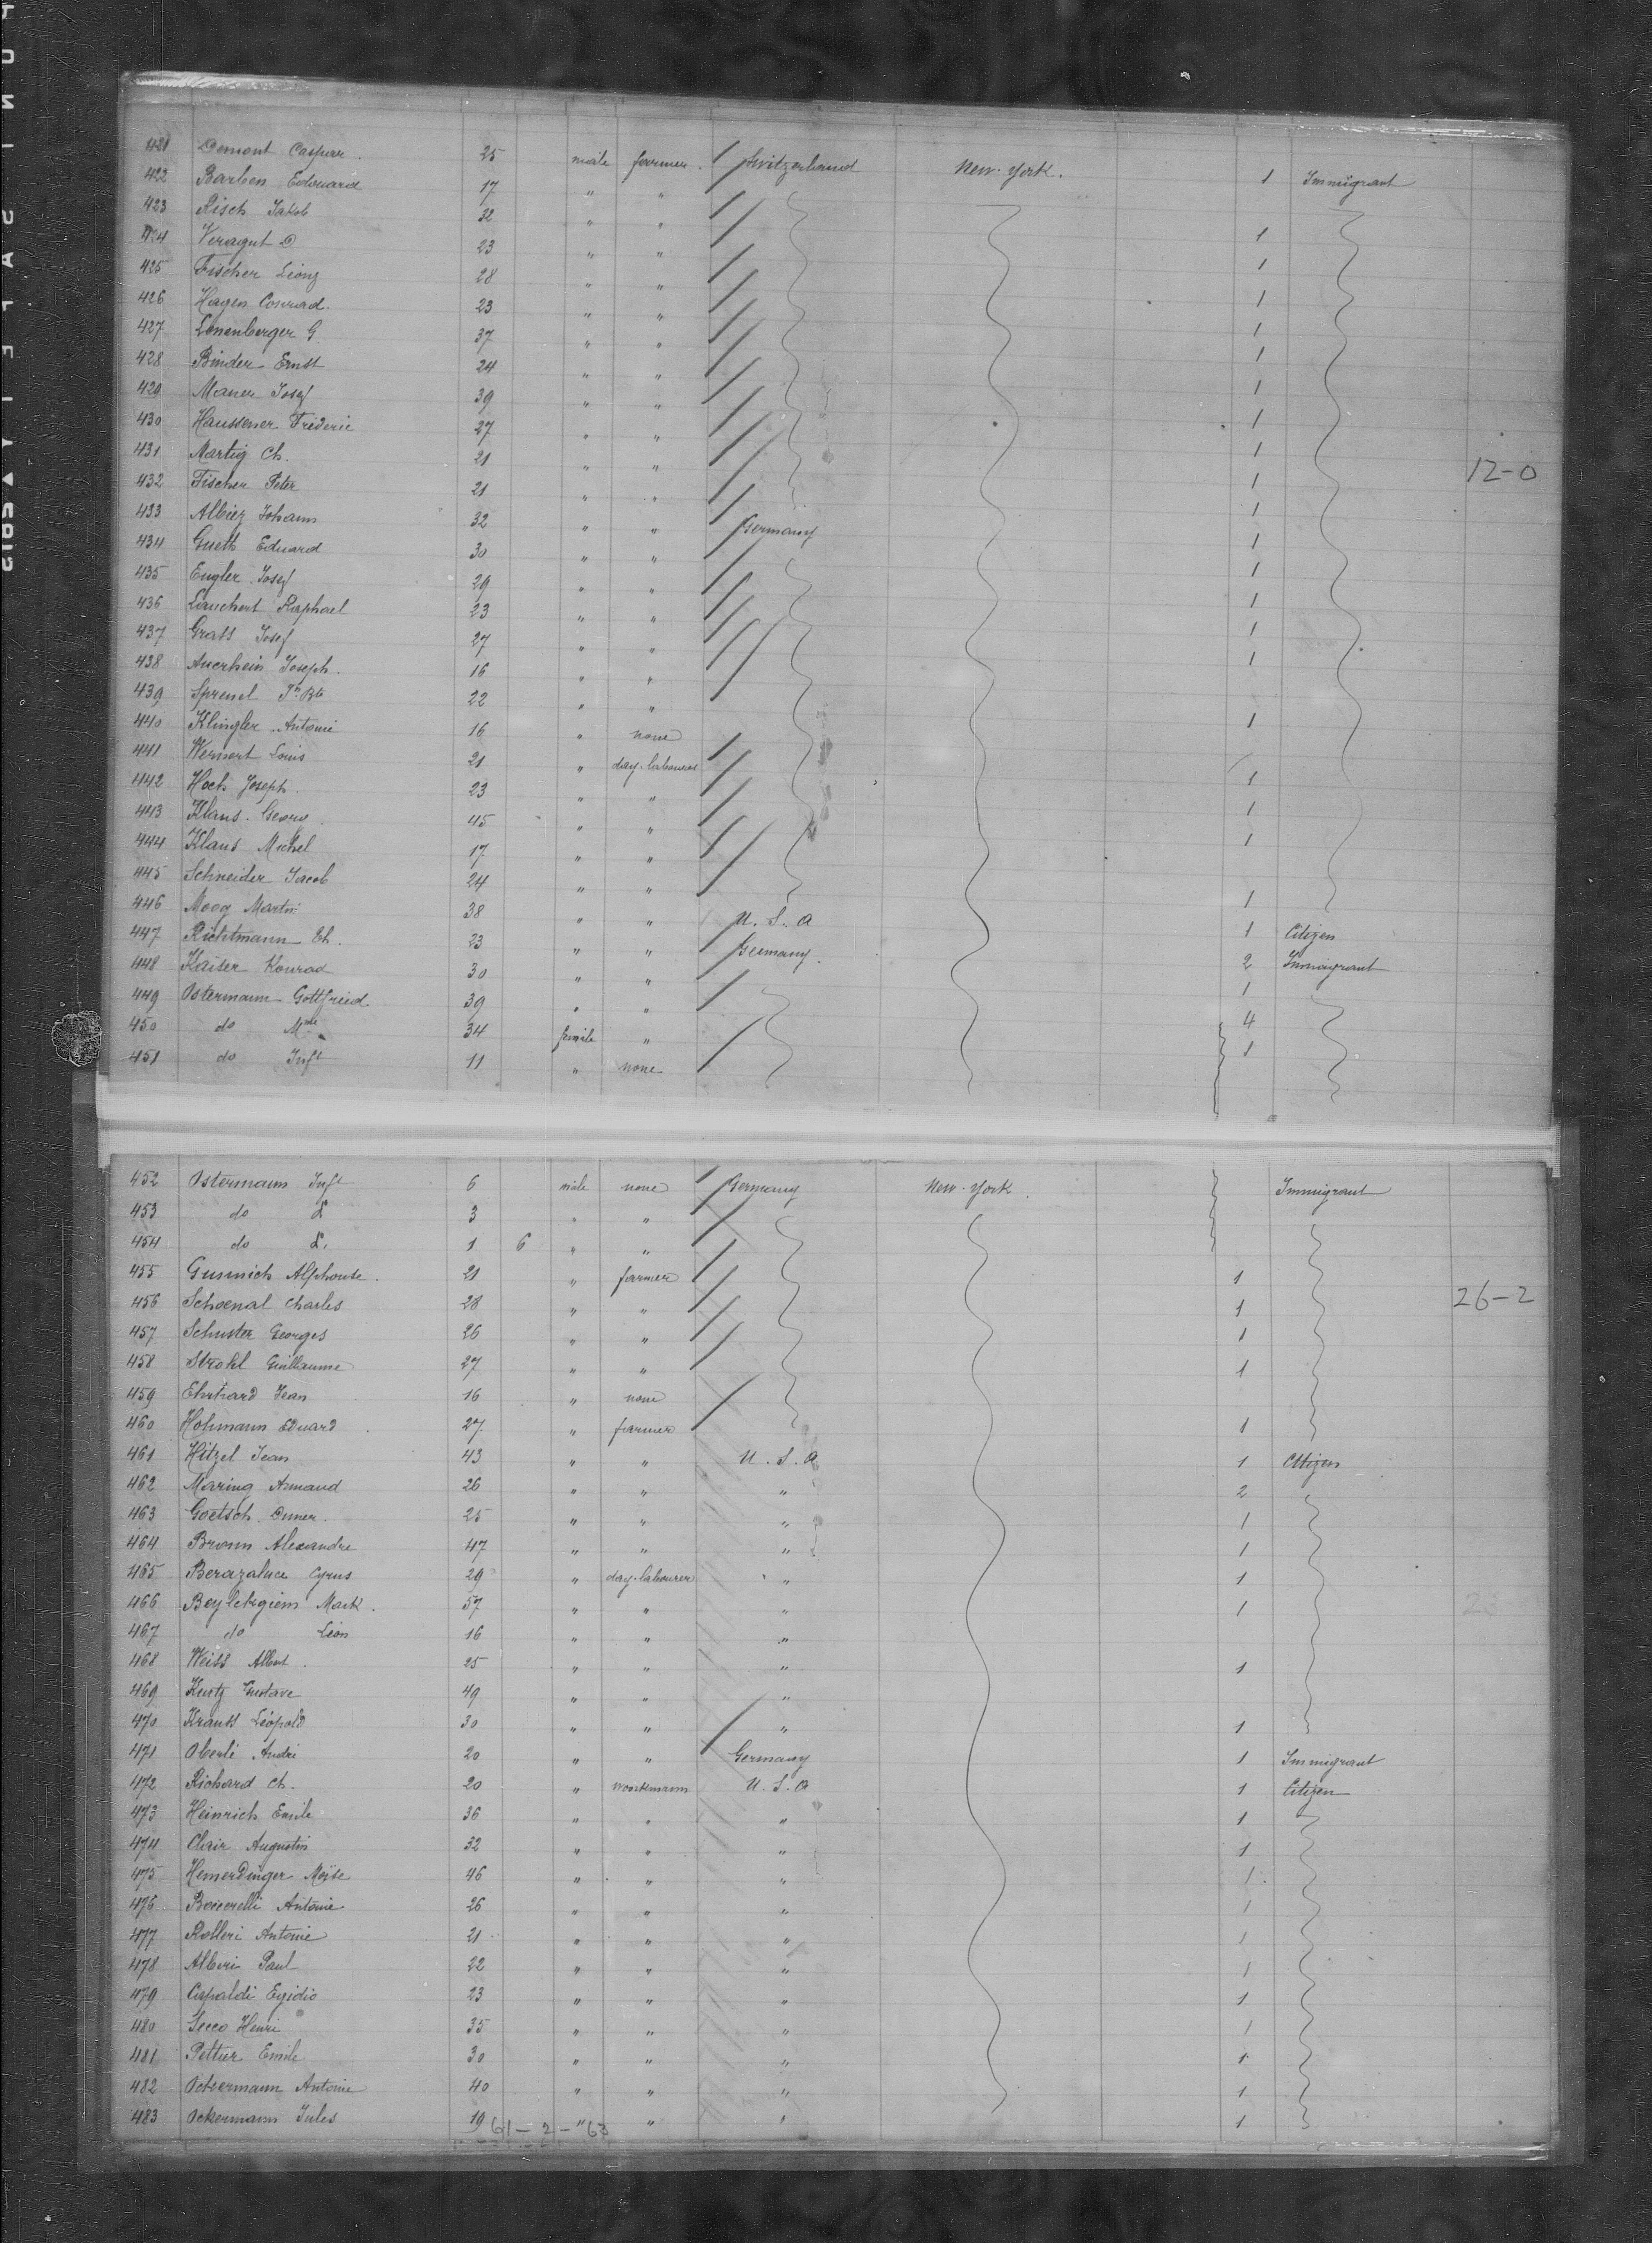 421 Demont Caspar. 25 male farmer. Switzerland New-York. 1 Immigrant
422 Barben Edouard 17 " "
423 Risch Jakob 32 " " 1
424 Veragut D 23 " " 1
425 Fischer Leonz 28 " " 1
426 Hagen Conrad. 23 " " 1
427 Lenenberger G. 37 " " 1
428 Binder Ernst 24 " " 1
429 Maner Josef 39 " " 1
430 Haussener Frederic 27 " " 1
431 Martig Ch. 21 " " 1 12-0
432 Fischer Peter 21 " " 1
433 Albiez Johann 32 " " Germany 1
434 Gueth Eduard 30 " " 1
435 Engler Josef 29 " " 1
436 Lauchert Raphael 23 " " 1
437 Grass Josef 27 " " 1
438 Auerhein Joseph. 16 " "
439 Sprenel Jn Bte 22 " " 1
440 Klingler Antoine 16 " none
441 Wernert Louis 21 " day-labourer 1
442 Hoch Joseph. 23 " " 1
443 Klaus Georg 45 " " 1
444 Klaus Michel 17 " "
445 Schneider Jacob 24 " " 1
446 Moog Martin 38 " " U. S. A 1 Citizen
447 Richtmann Ch. 23 " " Germany. 2 Immigrant
448 Kaiser Konrad 30 " " 1
449 Ostermann Gottfried 39 " " 4
450 do Mme 34 female " 1
451 do Inft 11 " none
452 Ostermann Inft 6 male none Germany New-York. Immigrant
453 do d 3 " "
454 do d. 1 6 " "
455 Gusmich Alphonse. 21 " farmer 1
456 Schoenal Charles 28 " " 1 26-2
457 Schuster Georges 26 " " 1
458 Strohl Guillaume 27 " " 1
459 Ehrhard Jean 16 " none
460 Hohmann Eduard 27 " farmer 1
461 Hitzel Jean 43 " " U. S. A 1 Citizen
462 Maring Armand 26 " " " 2
463 Goetsch 25 " " " 1
464 Bronn Alexandre 47 " " " 1
465 Berazaluce Cyrus 29 " day-labourer " 1
466 Beylekgiem Mark. 57 " " " 1
467 do Léon 16 " " "
468 Weiss Albert. 25 " " " 1
469 Kurtz Gustave 49 " " "
470 Krauss Léopold 30 " " " 1
471 Oberli André 20 " " Germany 1 Immigrant
472 Richard Ch. 20 " workmann U. S. A 1 Citizen
473 Heinrich Emile 36 " " " 1
474 Clair Augustin 32 " " " 1
475 Hemerdinger Moïse 46 " " " 1
476 Boccerelli Antoine 26 " " " 1
477 Rolleri Antoine 21 " " " 1
478 Alberi Paul 22 " " " 1
479 Cispaldi Egidio 23 " " " 1
480 Secco Henri 35 " " " 1
481 Peltier Emile 30 " " " 1
482 Ockermann Antoine 40 " " " 1
483 Ockermann Jules 19 " " " 1
61-2-63